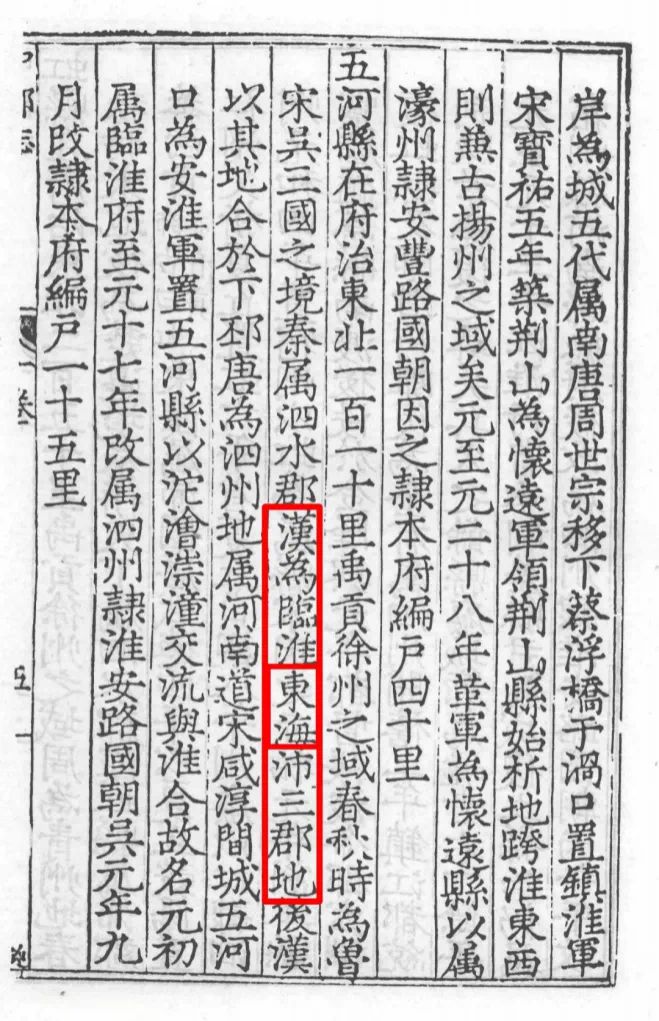 岸為城五代属南唐周世宗移下蔡浮橋于渦口置鎮淮軍
宋寶祐五年築荆山為懷遠軍領荆山縣始析地跨淮東西
則兼古揚州之域矣元至元二十八年革軍為懷遠縣以属
濠州隷安豐路國朝因之隷本府編戸四十里
五河縣在府治東北一百一十里禹貢徐州之域春秋時為魯
宋吳三國之境秦属泗水郡漢為臨淮東海沛三郡地後漢
以其地合於下邳唐為泗州地属河南道宋咸淳間城五河
口為安淮軍置五河縣以沱澮漴潼交流與淮合故名元初
属臨淮府至元十七年改属泗州隷淮安路國朝吳元年九
月改隷本府編戸一十五里